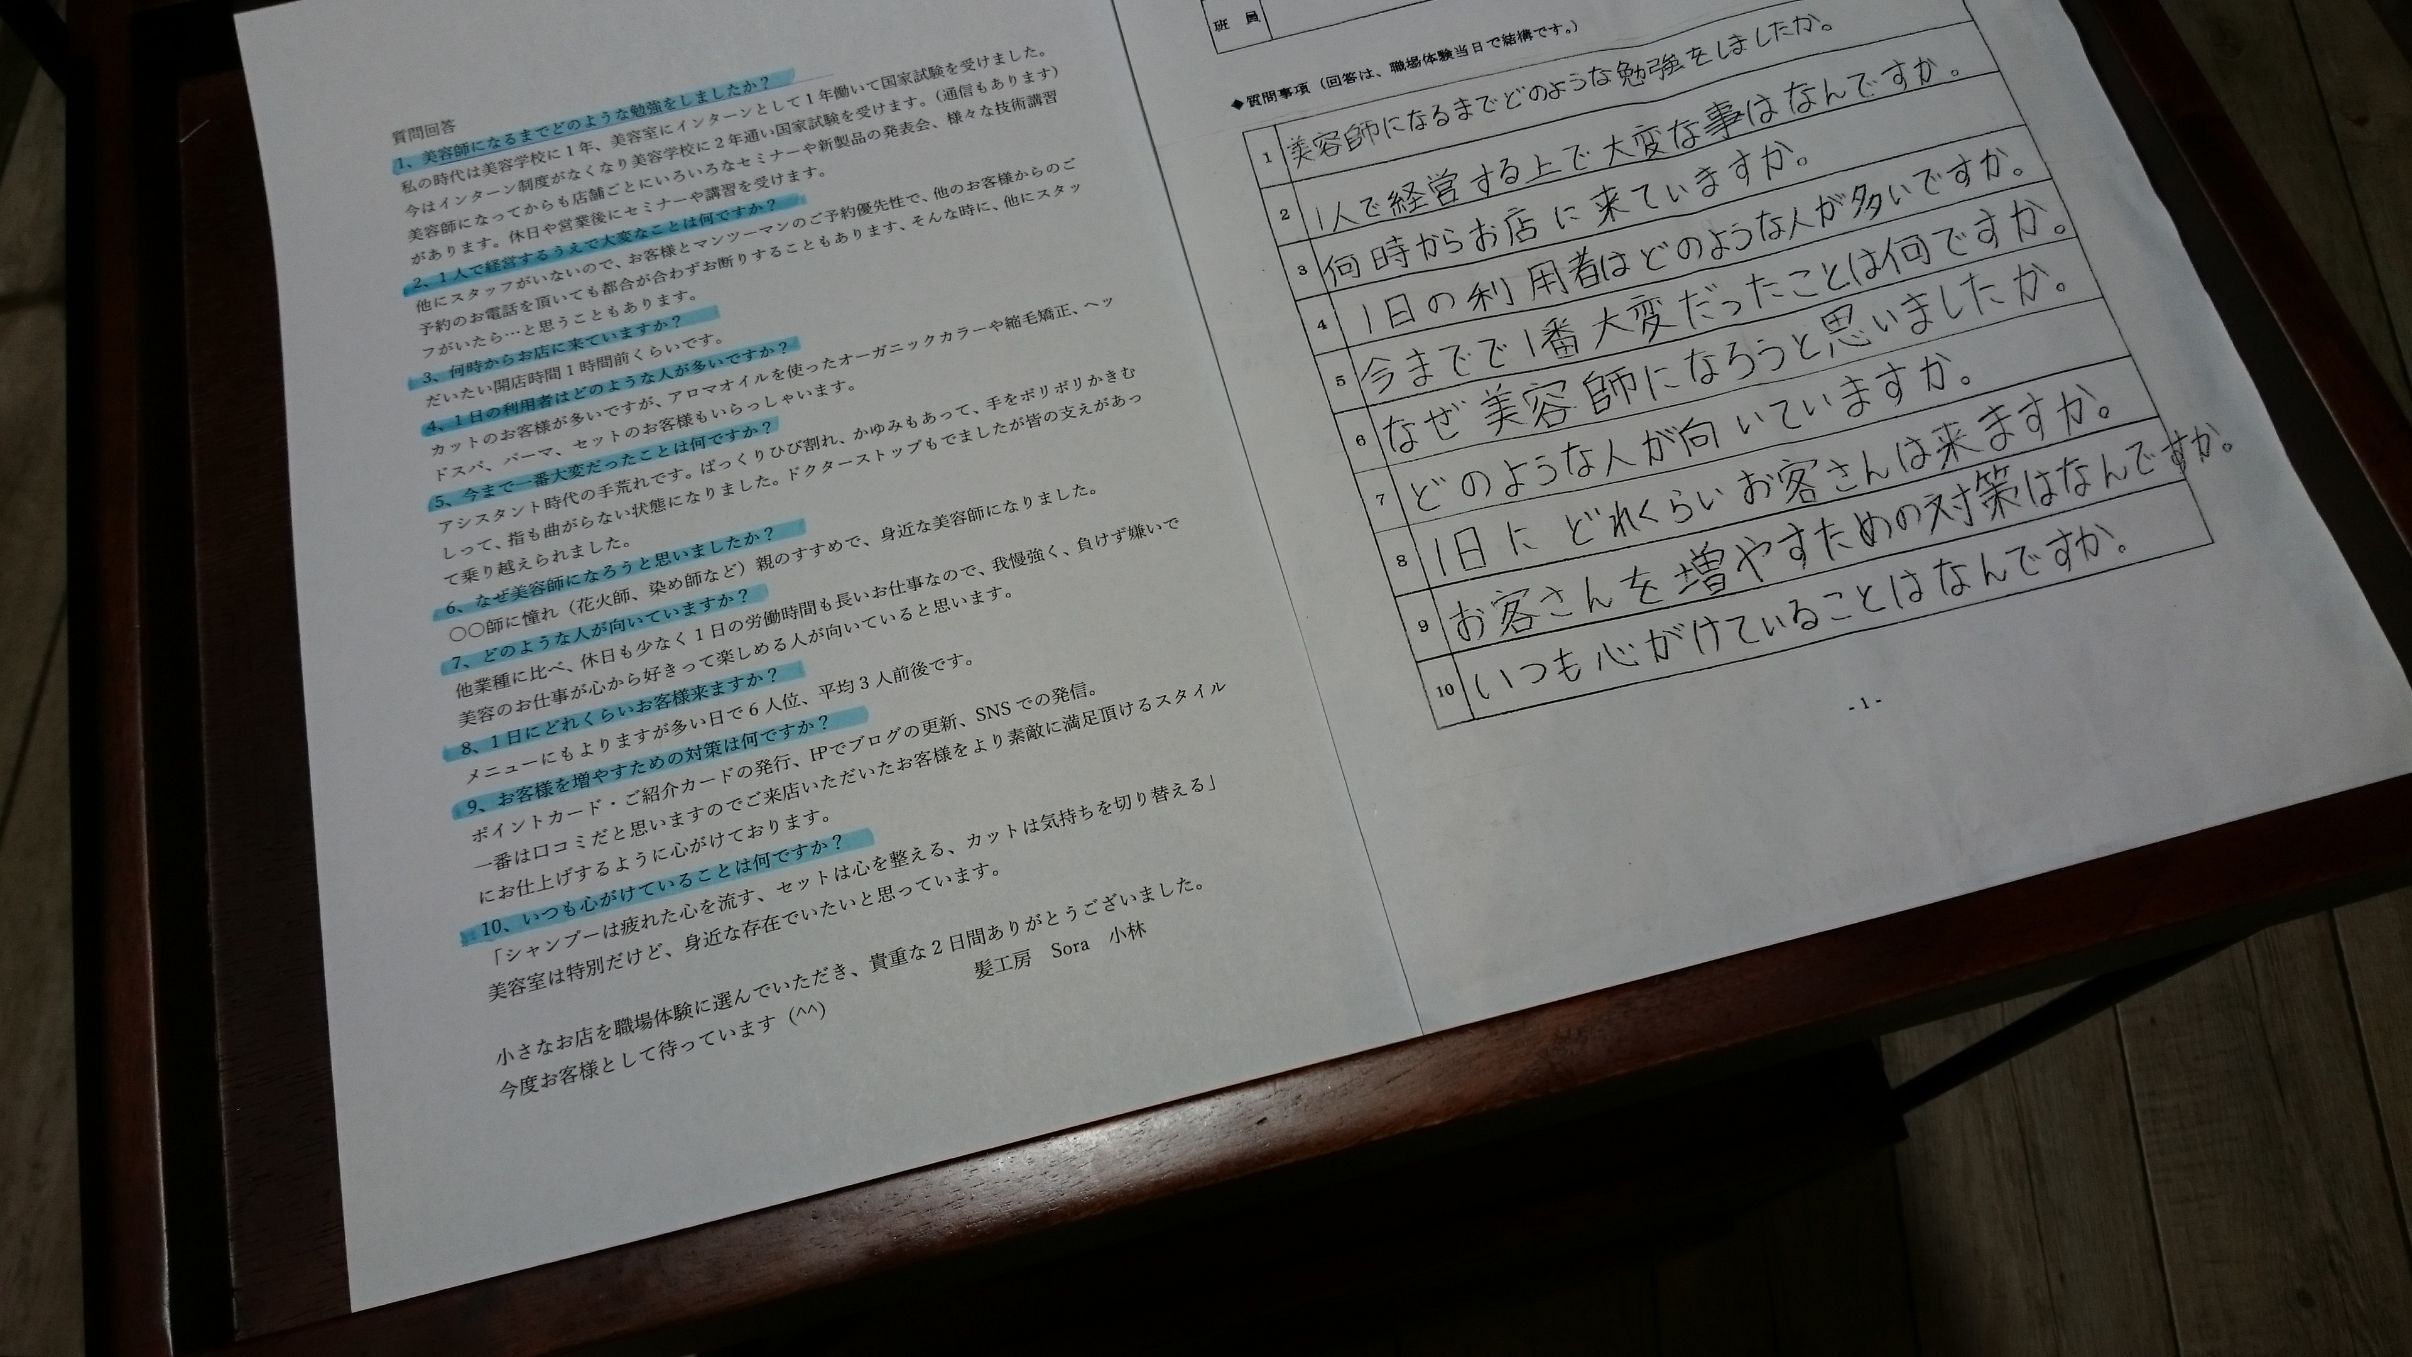 質問回答
1、美容師になるまでどのような勉強をしましたか？
私の時代は美容学校に1年、美容室にインターンとして1年働いて国家試験を受けました。
今はインターン制度がなくなり美容学校に2年通い国家試験を受けます。（通信もあります）
美容師になってからも店舗ごとにいろいろなセミナーや新製品の発表会、様々な技術講習
があります。休日や営業後にセミナーや講習を受けます。
2、1人で経営するうえで大変なことは何ですか？
他にスタッフがいないので、お客様とマンツーマンのご予約優先性で、他のお客様からのご
予約のお電話を頂いても都合が合わずお断りすることもあります、そんな時に、他にスタッ
フがいたら…と思うこともあります。
3、何時からお店に来ていますか？
だいたい開店時間1時間前くらいです。
4、1日の利用者はどのような人が多いですか？
カットのお客様が多いですが、アロマオイルを使ったオーガニックカラーや縮毛矯正、ヘッ
ドスパ、パーマ、セットのお客様もいらっしゃいます。
5、今まで一番大変だったことは何ですか？
アシスタント時代の手荒れです。ぱっくりひび割れ、かゆみもあって、手をボリボリかきむ
しって、指も曲がらない状態になりました。ドクターストップもでましたが皆の支えがあっ
て乗り越えられました。
6、なぜ美容師になろうと思いましたか？
〇〇師に憧れ（花火師、染め師など）親のすすめで、身近な美容師になりました。
7、どのような人が向いていますか？
他業種に比べ、休日も少なく1日の労働時間も長いお仕事なので、我慢強く、負けず嫌いで
美容のお仕事が心から好きって楽しめる人が向いていると思います。
8、1日にどれくらいお客様来ますか？
メニューにもよりますが多い日で6人位、平均3人前後です。
9、お客様を増やすための対策は何ですか？
ポイントカード・ご紹介カードの発行、HPでブログの更新、SNSでの発信。
一番は口コミだと思いますのでご来店いただいたお客様をより素敵に満足頂けるスタイル
にお仕上げするように心がけております。
10、いつも心がけていることは何ですか？
「シャンプーは疲れた心を流す、セットは心を整える、カットは気持ちを切り替える」
美容室は特別だけど、身近な存在でいたいと思っています。
小さなお店を職場体験に選んでいただき、貴重な2日間ありがとうございました。
今度お客様として待っています（^^）
髪工房　Sora　小林
班　員
◆質問事項（回答は、職場体験当日で結構です。）
1 美容師になるまでどのような勉強をしましたか。
2 1人で経営する上で大変な事はなんですか。
3 何時からお店に来ていますか。
4 1日の利用者はどのような人が多いですか。
5 今までで1番大変だったことは何ですか。
6 なぜ美容師になろうと思いましたか。
7 どのような人が向いていますか。
8 1日にどれくらいお客さんは来ますか。
9 お客さんを増やすための対策はなんですか。
10 いつも心がけていることはなんですか。
-1-